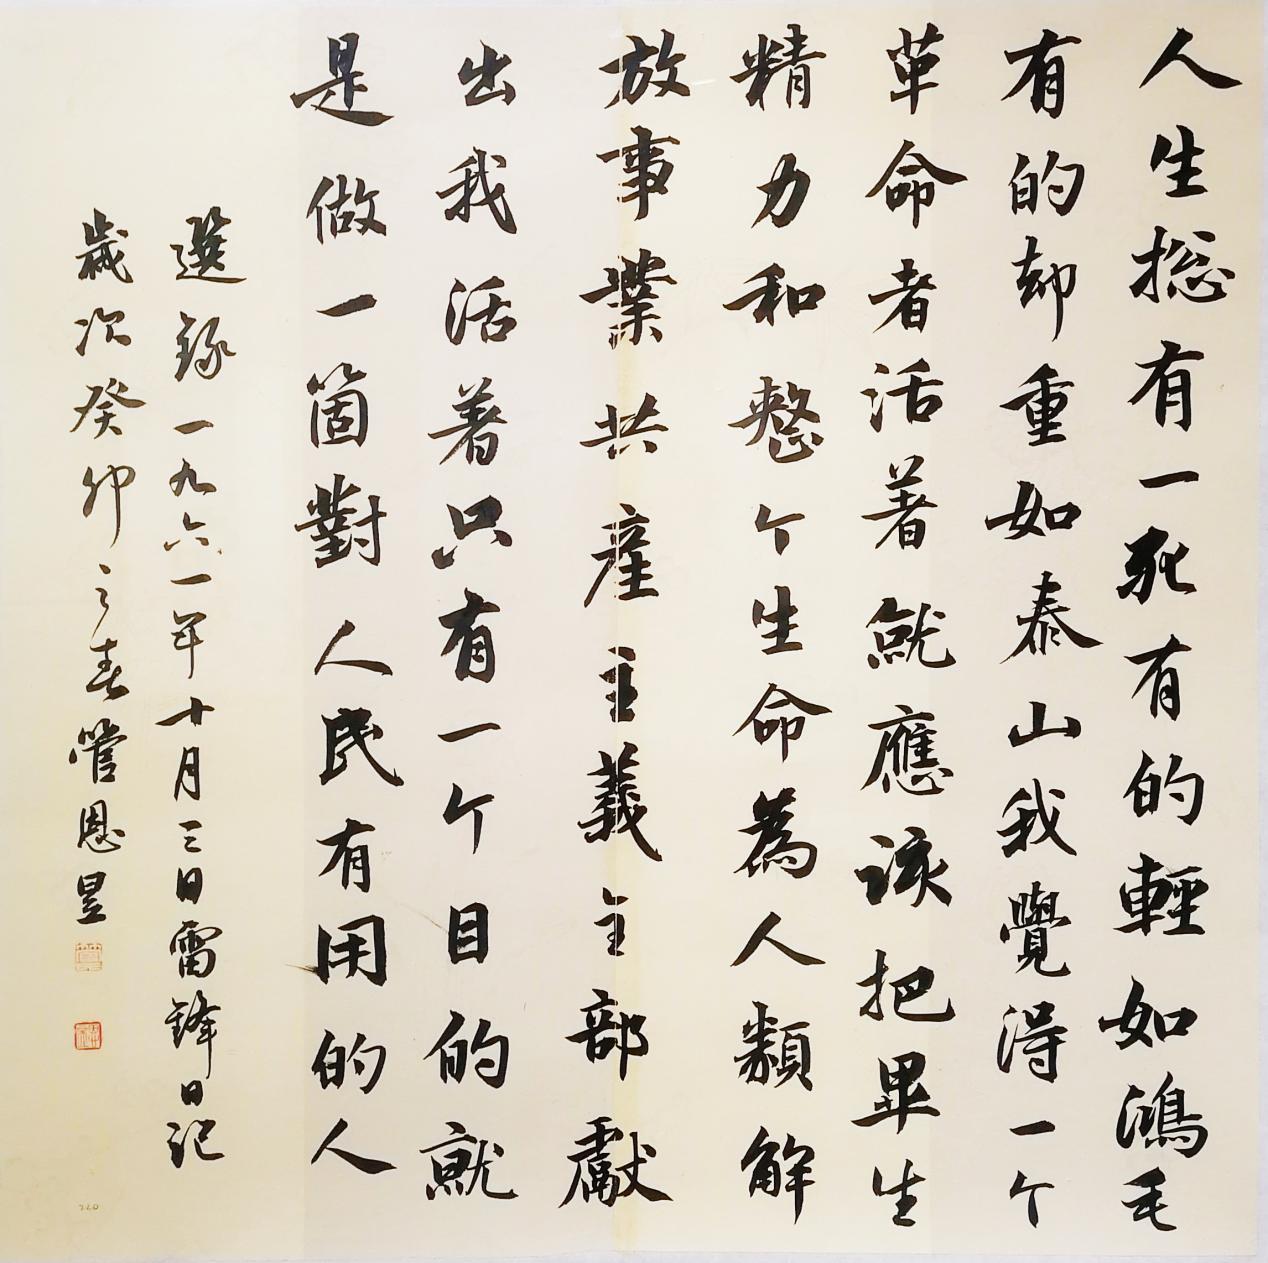 人生総有一死有的輕如鴻毛
有的却重如泰山我覺得一个
革命者活著就應該把畢生
精力和整个生命為人類解
放事業共產主義主部獻
出我活著只有一个目的就
是做一箇對人民有用的人
選錄一九六一年十月三日雷鋒日記
歲次癸卯之春管恩昱